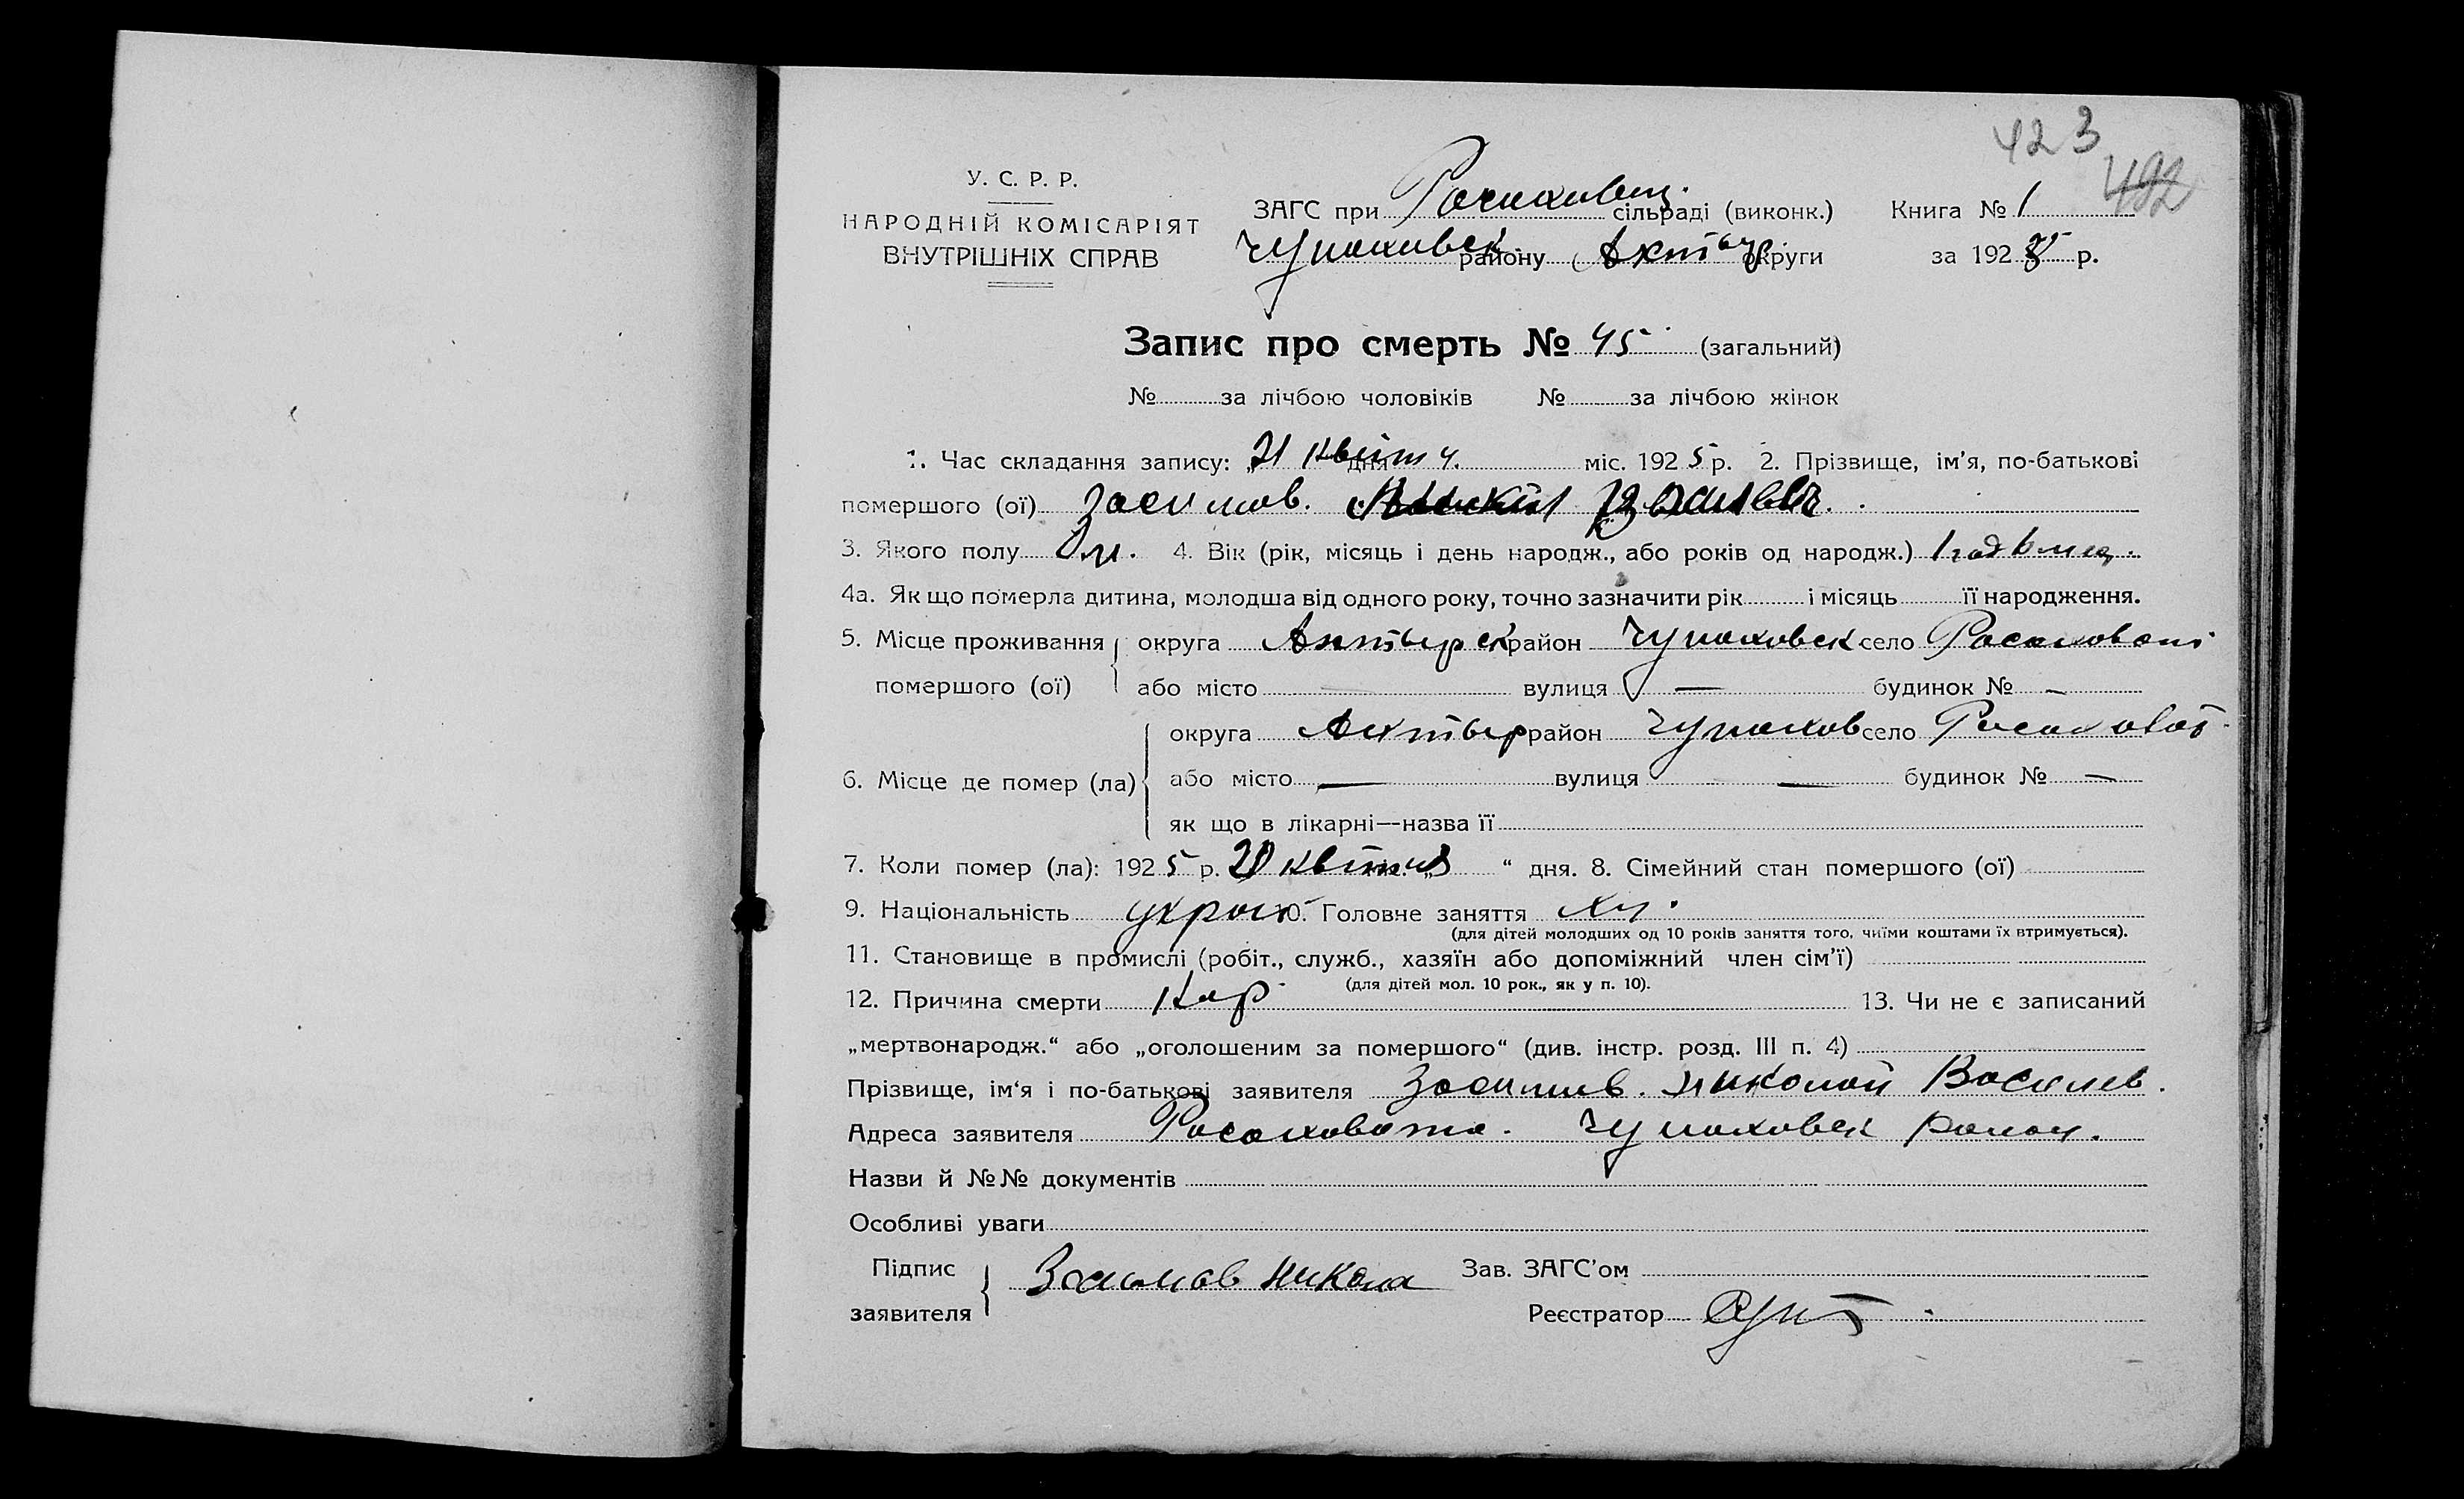 423
492
У. С. Р. Р.
НАРОДНІЙ КОМІСАРІЯТ
ВНУТРІШНІХ СПРАВ
ЗАГС при сільраді (виконк.) Книга № 1
Чупаховск. району Ахтыр округи за 1925 р.
Запис про смерть № 45 (загальний)
№ за лічбою чоловіків № за лічбою жінок
1. Час складання запису: „21 Квітн дня міс. 1925 р. 2. Прізвище, ім'я, по-батькові
помершого (ої) Засимов.
3. Якого полу м. 4. Вік (рік, місяць і день народж., або років од народж.) 1 год 6 мес.
4а. Як що померла дитина, молодша від одного року, точно зазначити рік і місяць її народження.
5. Місце проживання округа Ахтырск район Чупаховск село Расаховат
помершого (ої) або місто — вулиця — будинок № —
округа Ахтыр район Чупахов село Расаховат
6. Місце де помер (ла) або місто — вулиця — будинок № —
як що в лікарні—назва її
7. Коли помер (ла): 1925 р. 20 квітня “ дня. 8. Сімейний стан помершого (ої)
9. Національність 10. Головне заняття
(для дітей молодших од 10 років заняття того, чиїми коштами їх втримується).
11. Становище в промислі (робіт., служб., хазяїн або допоміжний член сім'ї)
(для дітей мол. 10 рок., як у п. 10).
12. Причина смерти Кор 13. Чи не є записаний
„мертвонародж.“ або „оголошеним за помершого“ (див. інстр. розд. III п. 4)
Прізвище, ім'я і по-батькові заявителя Засимов. Николай Васильев.
Адреса заявителя Расаховата. Чупаховск район.
Назви й №№ документів
Особливі уваги
Підпис Засимов Никола Зав. ЗАГС'ом
заявителя Реєстратор